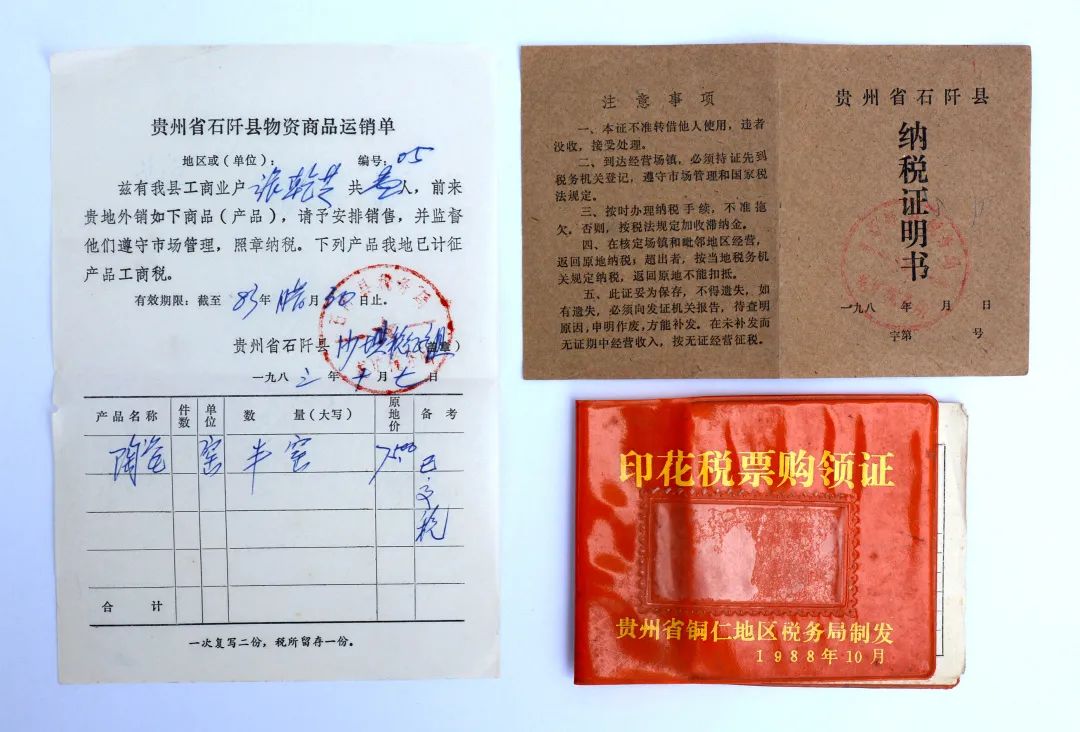 贵州省石阡县物资商品运销单
地区或(单位): 编号: 05
兹有我县工商业户 张乾芝 共 人，前来
贵地外销如下商品(产品)，请予安排销售，并监督
他们遵守市场管理，照章纳税。下列产品我地已计征
产品工商税。
有效期限：截至 83年 腊月 30日止。
贵州省石阡县 (盖章)
一九八三年十月七日
产品名称 件数 单位 数 量(大写) 原地价 备 考
陶瓷 窑 半窑 7500 已交税
合 计
一次复写二份，税所留存一份。
注意事项
一、本证不准转借他人使用，违者
没收，接受处理。
二、到达经营场镇，必须持证先到
税务机关登记，遵守市场管理和国家税
法规定。
三、按时办理纳税手续，不准拖
欠。否则，按税法规定加收滞纳金。
四、在核定场镇和毗邻地区经营，
返回原地纳税；超出者，按当地税务机
关规定纳税，返回原地不能扣抵。
五、此证妥为保存，不得遗失，如
有遗失，必须向发证机关报告，待查明
原因，申明作废，方能补发。在未补发而
无证期中经营收入，按无证经营征税。
贵州省石阡县
纳税证明书
一九八 年 月 日
字第 号
印花税票购领证
贵州省铜仁地区税务局制发
1988年10月